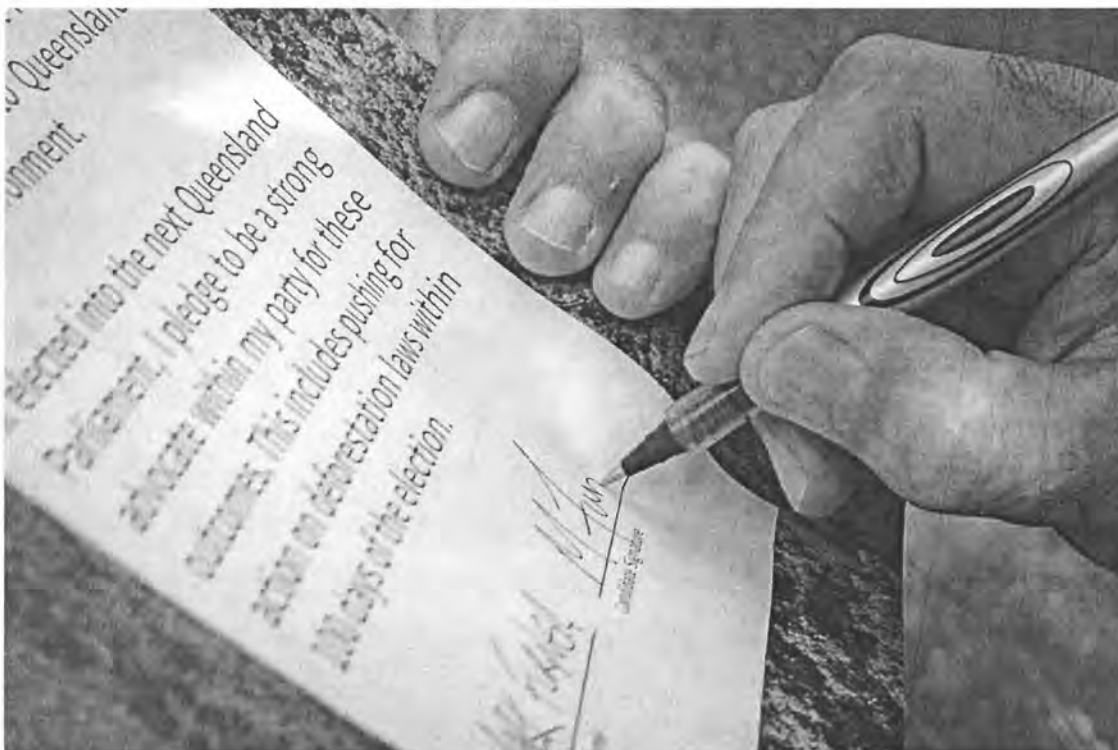 to Queensland
onment.
elected into the next Queensland
Parliament, I pledge to be a strong
advocate within my party for these
outcomes. This includes pushing for
action on deforestation laws within
100 days of the election.
Candidate Signature